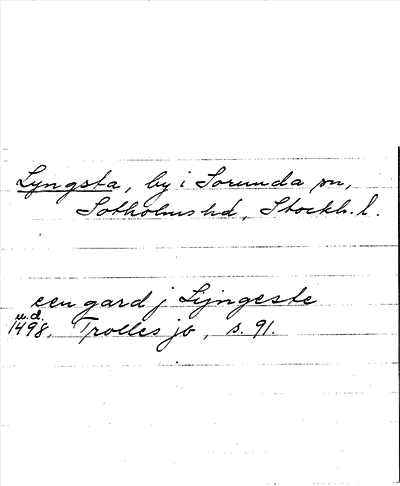 Lyngsta, by i Sorunda sn,
Sotholms hd, Stockh. l.
een gard j Lijngeste
u.d.
1498, Trolles jb, s. 91.